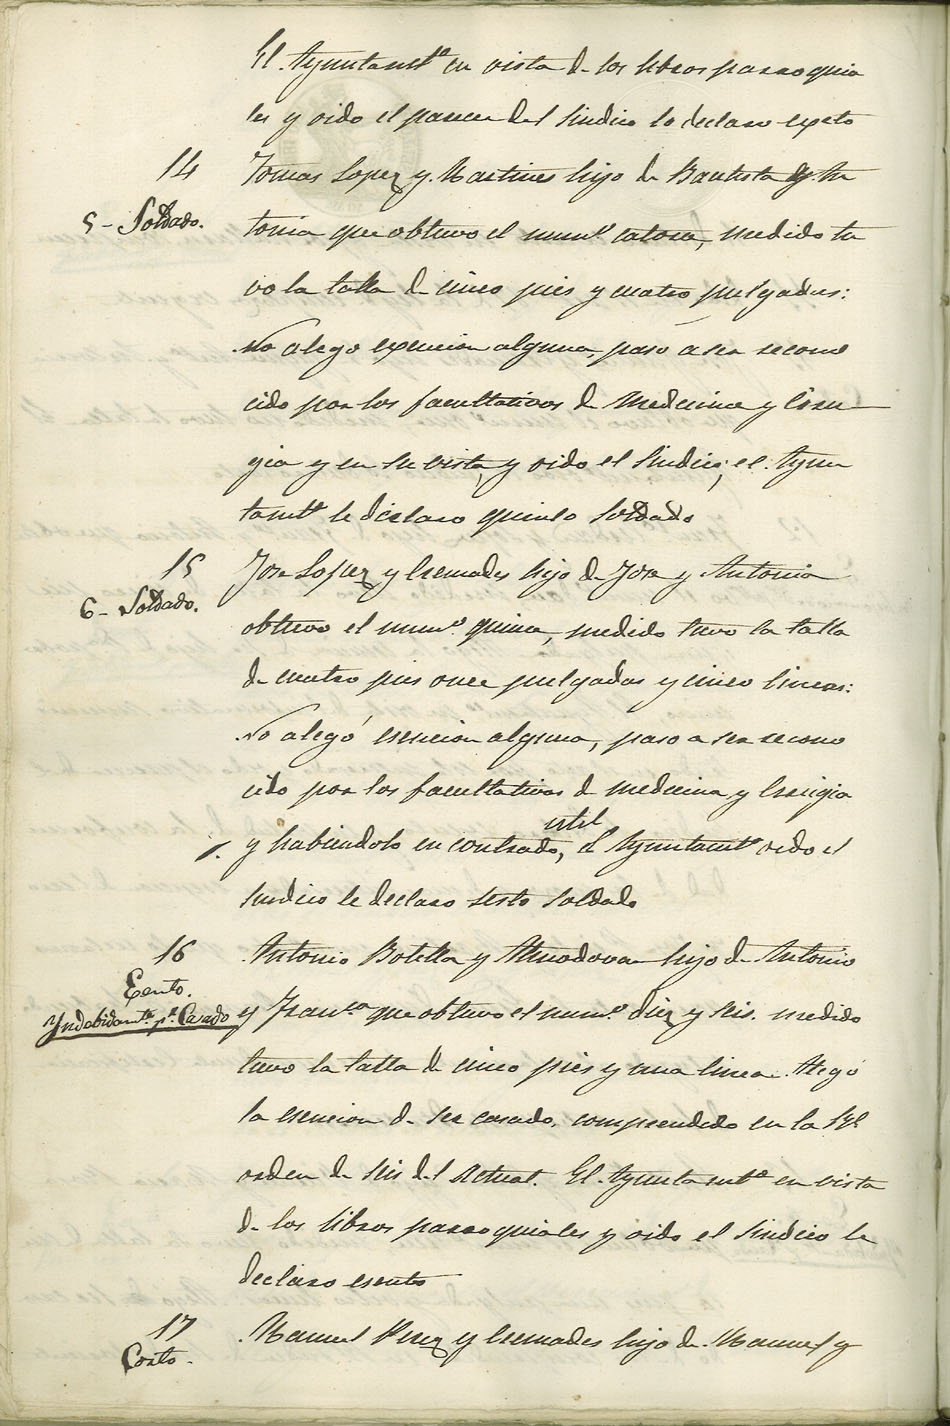 El Ayuntamto. en vista de los libros parroquia
les y oido el parecer del Sindico lo declaro esento
14 Tomas Lopez y Martines hijo de Bautista y An
5 - Soldado. tonia que obtuvo el numo. catorce, medido tu
vo la talla de cinco pies y cuatro pulgadas:
No alego esencion alguna, paso a ser recono
cido por los facultativos de Medicina y Ciru
gia y en su vista, y oido el Sindico, el Ayun
tamto. le declaro quinto Soldado
15 Jose Lopez y Cremades hijo de Jose y Antonia
6 - Soldado. obtuvo el numo. quince, medido tuvo la talla
de cuatro pies once pulgadas y cinco lineas:
No alegó esencion alguna, paso a ser recono
cido por los facultativos de medicina y Cirugia
util
y habiendolo encontrado, el Ayuntamto. oido el
Sindico le declaro sesto soldado
16 Antonio Botella y Almodovar hijo de Antonio
Esento.
Yndebidamte. pr. Casado y Franca. que obtuvo el numo. diez y seis. medido
tuvo la talla de cinco pies y una linea. Alegó
la esencion de ser casado, comprendido en la Rl.
orden de seis del Actual. El Ayuntamto. en vista
de los libros parroquiales y oido el Sindico le
declaro esento
17 Manuel Perez y Cremades hijo de Manuel y
Corto.